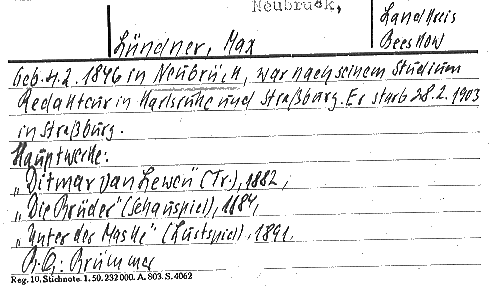 Neubrück,
Landkreis
Beeskow
Lündner, Max
Geb. 4.2. 1846 in Neubrück, war nach seinem Studium
Redakteur in Karlsruhe und Straßburg. Er starb 28.2.1903
in Straßburg.
Hauptwerke:
„Ditmar van Lewen" (Tr.), 1882,
„Die Brüder" (Schauspiel), 1884,
„Unter der Maske" (Lustspiel). 1891.
Brümmer
Reg. 10, Stichnote. 1. 50. 232 000. A. 803. S. 4062